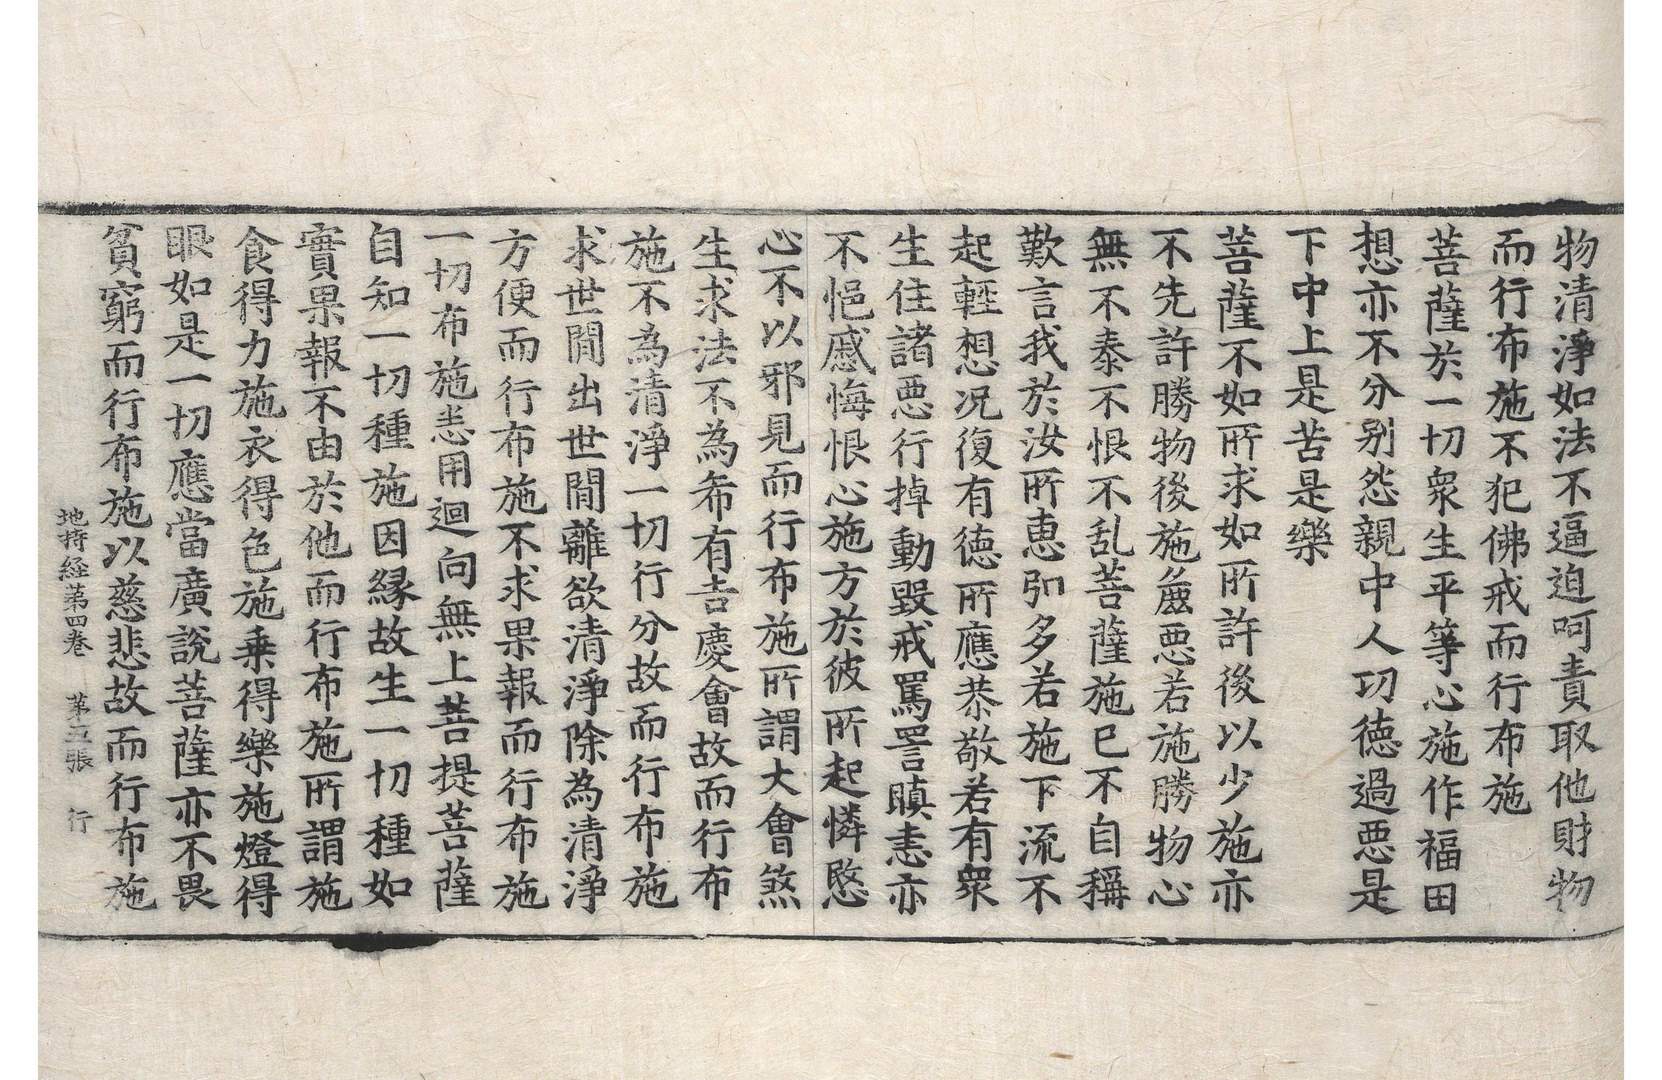 物清淨如法不逼迫呵責取他財物
而行布施不犯佛戒而行布施
菩薩於一切衆生平等心施作福田
想亦不分别怨親中人功德過惡是
下中上是苦是樂
菩薩不如所求如所許後以少施亦
不先許勝物後施麁惡若施勝物心
無不泰不恨不乱菩薩施已不自稱
歎言我於汝所惠弘多若施下流不
起輕想况復有德所應恭敬若有衆
生住諸惡行掉動毀戒罵詈瞋恚亦
不悒慼悔恨心施方於彼所起憐愍
心不以邪見而行布施所謂大會煞
生求法不為希有吉慶會故而行布
施不為清淨一切行分故而行布施
求世間出世間離欲清淨除為清淨
方便而行布施不求果報而行布施
一切布施悉用迴向無上菩提菩薩
自知一切種施因緣故生一切種如
實果報不由於他而行布施所謂施
食得力施衣得色施乗得樂施燈得
眼如是一切應當廣說菩薩亦不畏
貧窮而行布施以慈悲故而行布施
地持経第四卷 第五張 行